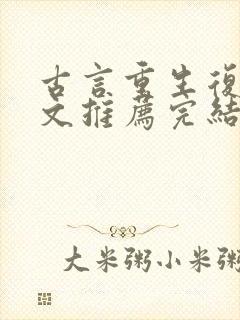 古言重生復
文推薦完結
大米粥小米粥